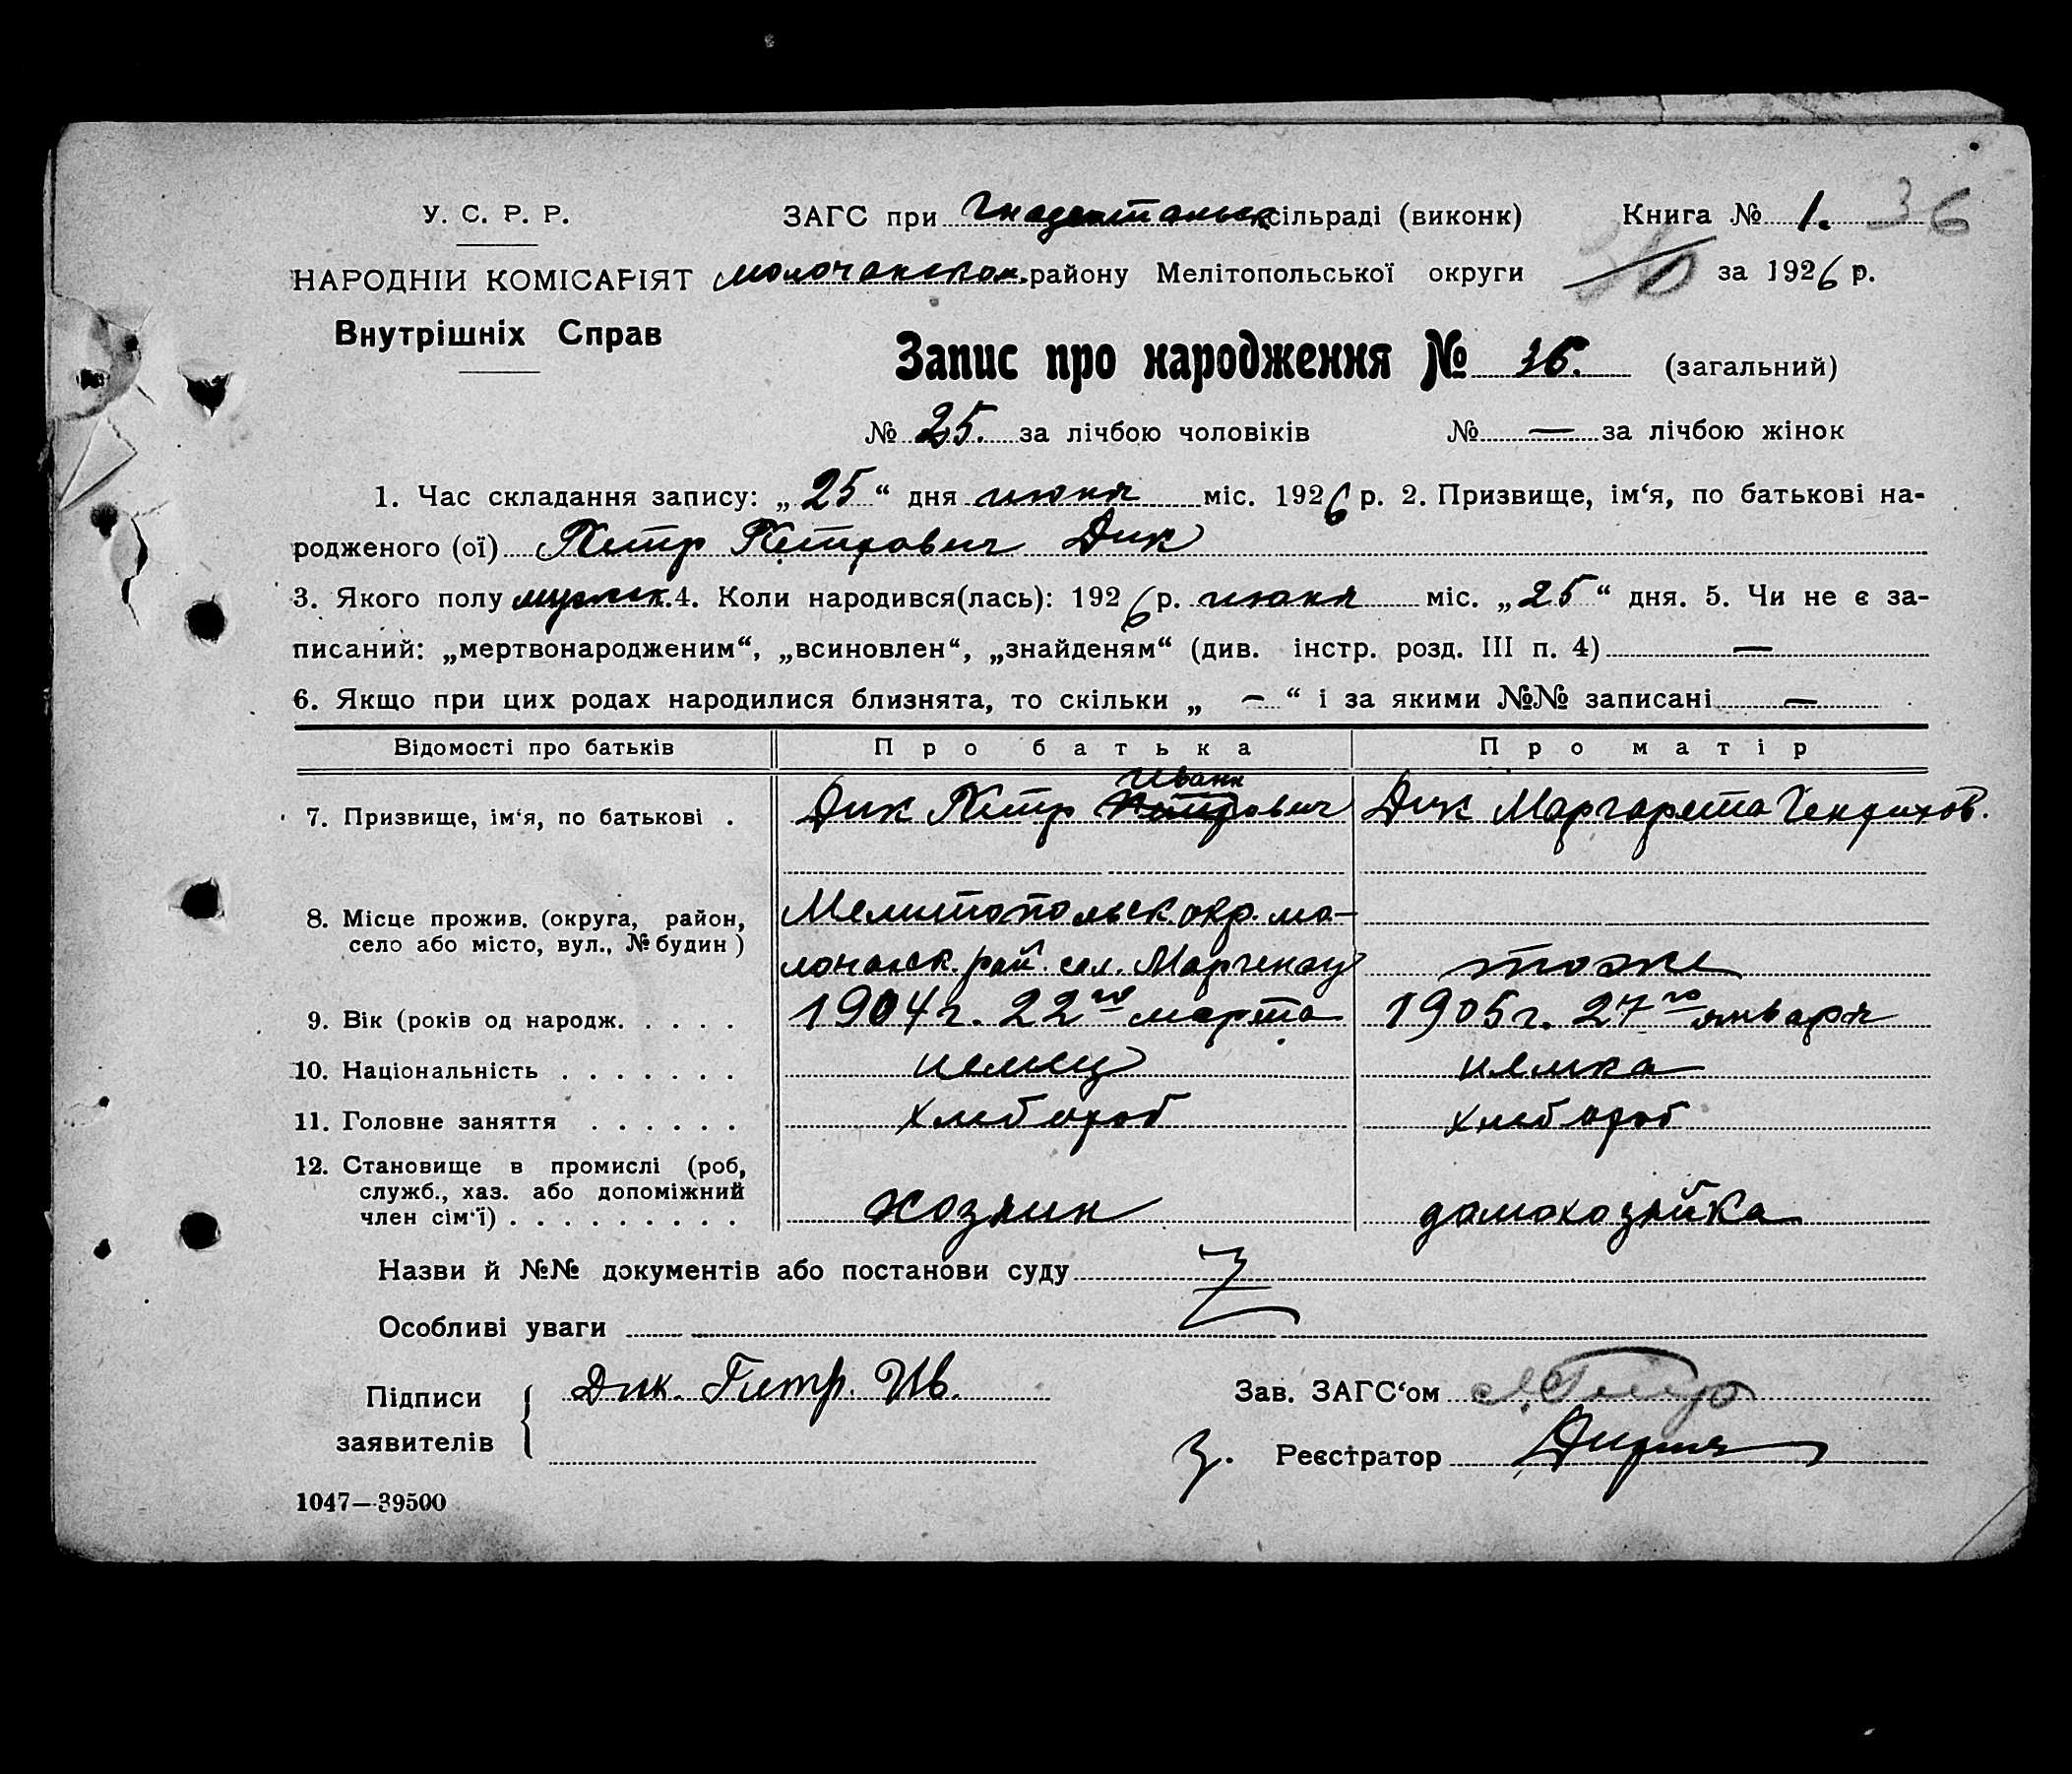 У. С. Р. Р.
ЗАГС при Гнадентальск. сільраді (виконк) Книга № 1. 36
НАРОДНІЙ КОМІСАРІЯТ Молочанском району Мелітопольської округи за 1926 р.
Внутрішніх Справ
Запис про народження № 36. (загальний)
№ 25. за лічбою чоловіків № — за лічбою жінок
1. Час складання запису: „25“ дня июня міс. 1926 р. 2. Призвище, ім‘я, по батькові на-
родженого (ої) Петр Петрович Дик
3. Якого полу мужск. 4. Коли народився(лась): 1926 р. июня міс. „25“ дня. 5. Чи не є за-
писаний: „мертвонародженим“, „всиновлен“, „знайденям“ (див. інстр. розд. III п. 4) —
6. Якщо при цих родах народилися близнята, то скільки „ — “ і за якими №№ записані —
Відомості про батьків Про батька Про матір
Иван
7. Призвище, ім‘я, по батькові . Дик Петр Петрович Дик Маргарета Гендрихов.
8. Місце прожив. (округа, район, Мелитопольск. окр. мо-
село або місто, вул., № будин) лочанск. рай. сел. Маргенау тоже
9. Вік (років од народж. . . . . 1904 г. 22го марта 1905 г. 27го января
10. Національність . . . . . . . немец немка
11. Головне заняття . . . . . . хлебороб хлебороб
12. Становище в промислі (роб,
служб., хаз. або допоміжний
член сім‘ї) . . . . . . . . . хозяин домохозяйка
Назви й №№ документів або постанови суду
Особливі уваги
Підписи Дик. Петр. Ив. Зав. ЗАГС‘ом
заявителів З. Реєстратор
1047—39500